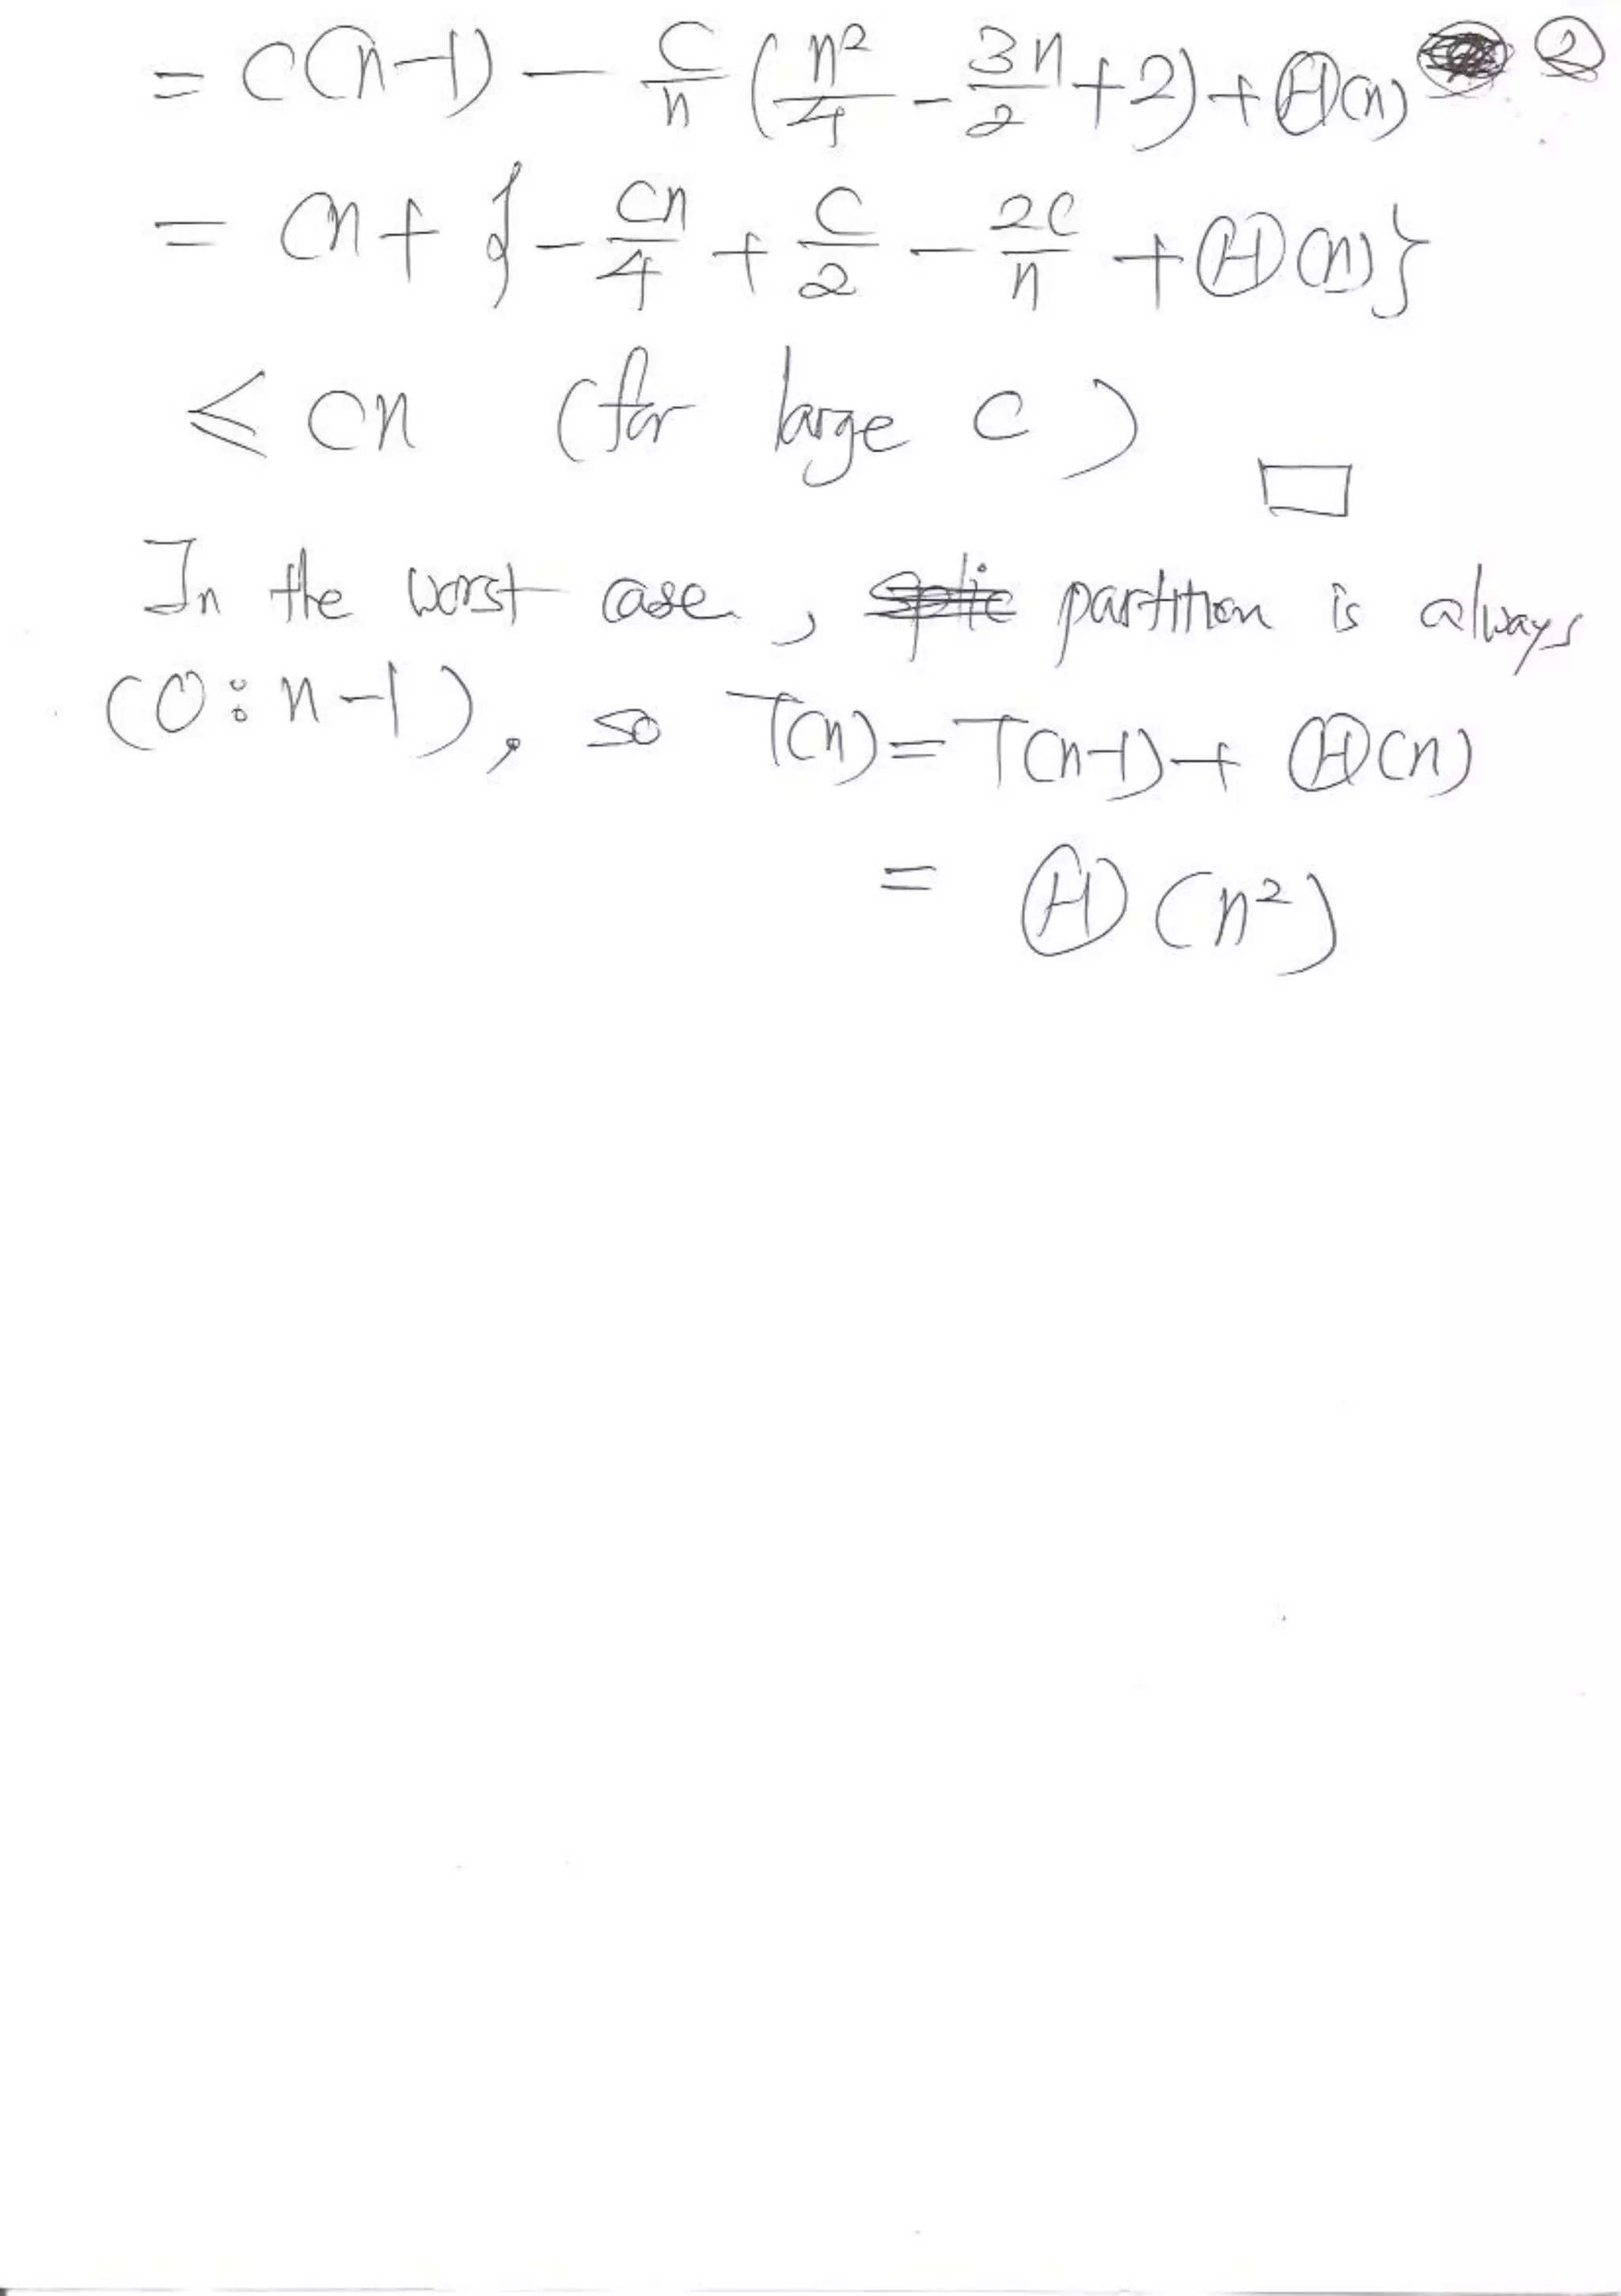 = c(n-1) - c/n (n²/4 - 3n/2 + 2) + Θ(n) ②
= cn + {- cn/4 + c/2 - 2c/n + Θ(n)}
≤ cn (for large c) □
In the worst case, partition is always
(0:n-1), so T(n) = T(n-1) + Θ(n)
= Θ(n²)